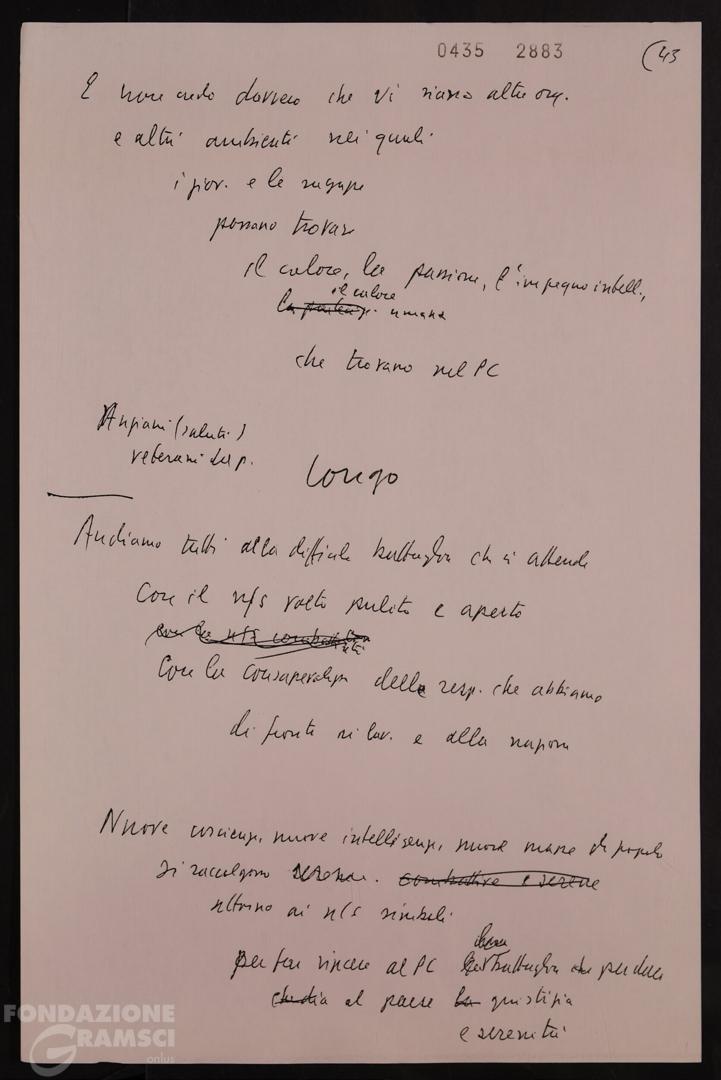 0435 2883 (43
E non credo davvero che vi siano altre org.
e altri ambienti nei quali
i giov. e le ragazze
possano trovare
il calore, la passione, l'impegno intell.,
il calore
umana
che trovano nel PC
Anziani (saluti)
veterani del p.
Longo
Andiamo tutti alla difficile battaglia che ci attende
Con il n/s volto pulito e aperto
con la n/s
Con la consapevolezza della resp. che abbiamo
di fronte ai lav. e alla nazione
Nuove coscienze, nuove intelligenze, nuove masse di popolo
si raccolgono serene. combattive e serene
attorno ai n/s simboli
per far vincere al PC battaglia che per dare
che dia al paese la giustizia
e serenità
FONDAZIONE
GRAMSCI
onlus